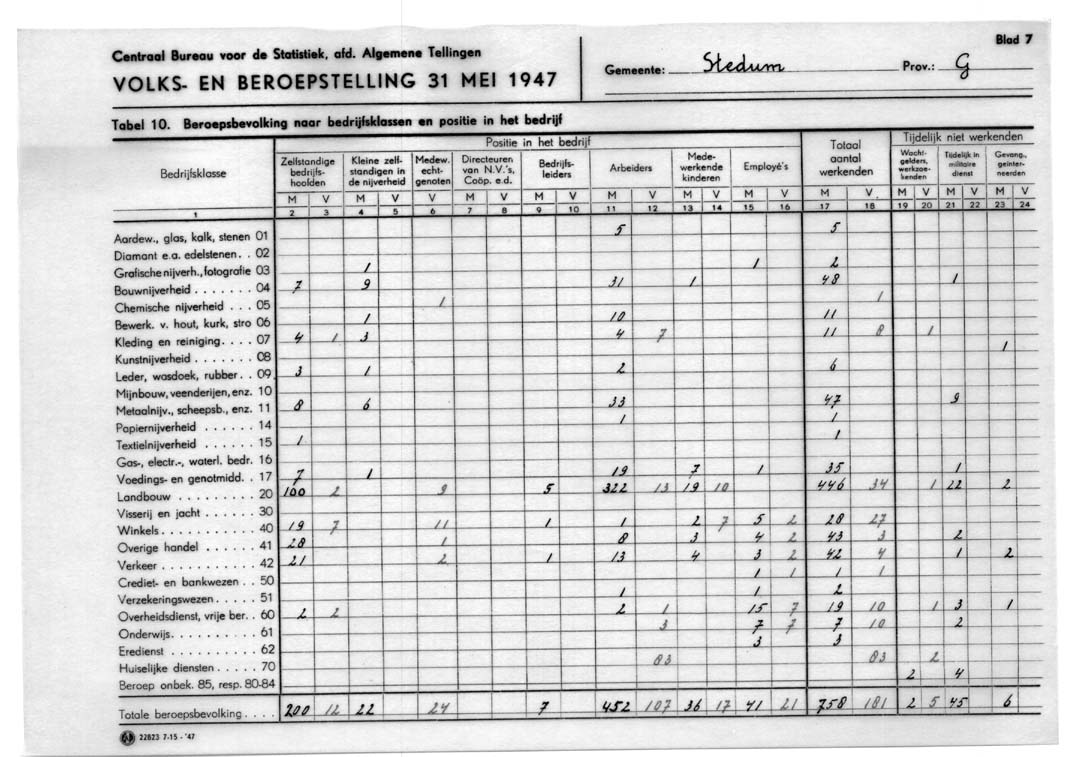 Centraal Bureau voor de Statistiek, afd. Algemene Tellingen
VOLKS- EN BEROEPSTELLING 31 MEI 1947
Gemeente: Stedum Prov.: G
Blad 7
Tabel 10. Beroepsbevolking naar bedrijfsklassen en positie in het bedrijf
Bedrijfsklasse
Positie in het bedrijf
Zelfstandige bedrijfs- hoofden
Kleine zelf- standigen in de nijverheid
Medew. echt- genoten
Directeuren van N.V.'s, Coöp. e.d.
Bedrijfs- leiders
Arbeiders
Mede- werkende kinderen
Employé's
Totaal aantal werkenden
Tijdelijk niet werkenden
Wacht- gelders, werkzoe- kenden
Tijdelijk in militaire dienst
Gevang., geïnter- neerden
M V M V V M V M V M V M V M V M V M V M V M V
1 2 3 4 5 6 7 8 9 10 11 12 13 14 15 16 17 18 19 20 21 22 23 24
Aardew., glas, kalk, stenen 01 5 5
Diamant e.a. edelstenen. . 02
Grafische nijverh., fotografie 03 1 1 2
Bouwnijverheid . . . . . . . 04 7 9 31 1 48 1
Chemische nijverheid . . . 05 1 1
Bewerk. v. hout, kurk, stro 06 1 10 11
Kleding en reiniging. . . . 07 4 1 3 4 7 11 8 1
Kunstnijverheid . . . . . . . 08 1
Leder, wasdoek, rubber. . 09 3 1 2 6
Mijnbouw, veenderijen, enz. 10
Metaalnijv., scheepsb., enz. 11 8 6 33 47 9
Papiernijverheid . . . . . . 14 1 1
Textielnijverheid . . . . . . 15 1 1
Gas-, electr.-, waterl. bedr. 16
Voedings- en genotmidd. . 17 7 1 19 7 1 35 1
Landbouw . . . . . . . . . 20 100 2 9 5 322 13 19 10 446 34 1 22 2
Visserij en jacht . . . . . . 30
Winkels . . . . . . . . . . . 40 19 7 11 1 1 2 7 5 2 28 27
Overige handel . . . . . . 41 28 1 8 3 4 2 43 3 2
Verkeer . . . . . . . . . . 42 21 2 1 13 4 3 2 42 4 1 2
Crediet- en bankwezen . . 50 1 1 1 1
Verzekeringswezen. . . . . 51 1 1 2
Overheidsdienst, vrije ber. . 60 2 2 2 1 15 7 19 10 1 3 1
Onderwijs. . . . . . . . . . 61 3 7 7 7 10 2
Eredienst . . . . . . . . . 62 3 3
Huiselijke diensten . . . . . 70 83 83 2
Beroep onbek. 85, resp. 80-84 2 4
Totale beroepsbevolking . . . . 200 12 22 24 7 452 107 36 17 41 21 758 181 2 5 45 6
22823 7-15 - '47